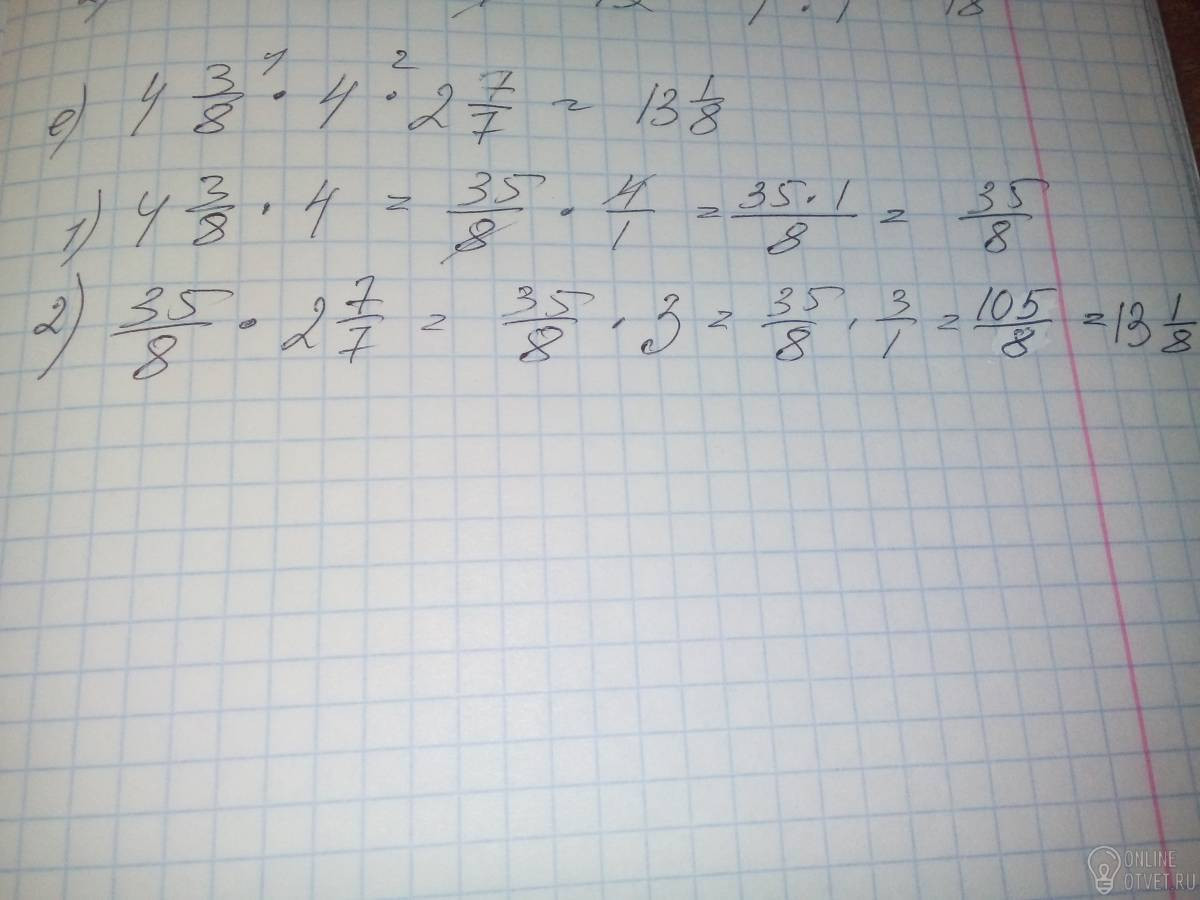 е) 4 3/8 · 4 · 2 7/7 = 13 1/8
1) 4 3/8 · 4 = 35/8 · 4/1 = 35·1/8 = 35/8
2) 35/8 · 2 7/7 = 35/8 · 3 = 35/8 · 3/1 = 105/8 = 13 1/8
ONLINE
OTVET.RU